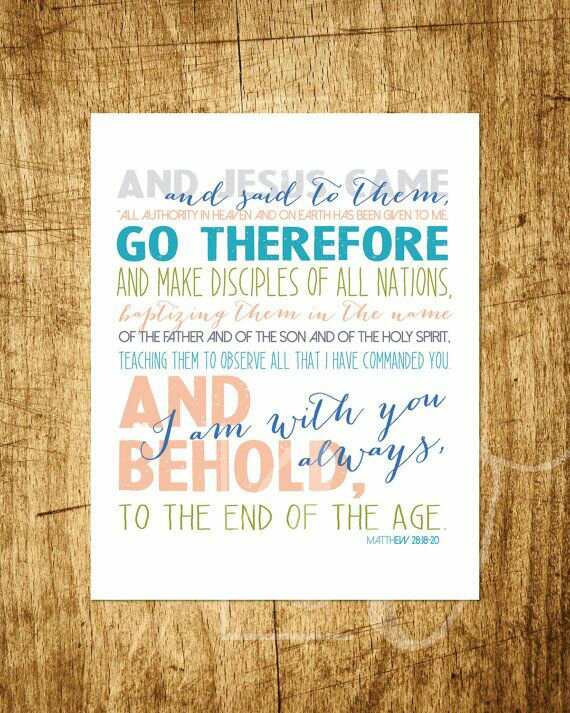 AND JESUS CAME
and said to them,
"ALL AUTHORITY IN HEAVEN AND ON EARTH HAS BEEN GIVEN TO ME.
GO THEREFORE
AND MAKE DISCIPLES OF ALL NATIONS,
baptizing them in the name
OF THE FATHER AND OF THE SON AND OF THE HOLY SPIRIT,
TEACHING THEM TO OBSERVE ALL THAT I HAVE COMMANDED YOU.
AND
I am with you
BEHOLD,
always,
TO THE END OF THE AGE.
MATTHEW 28:18-20